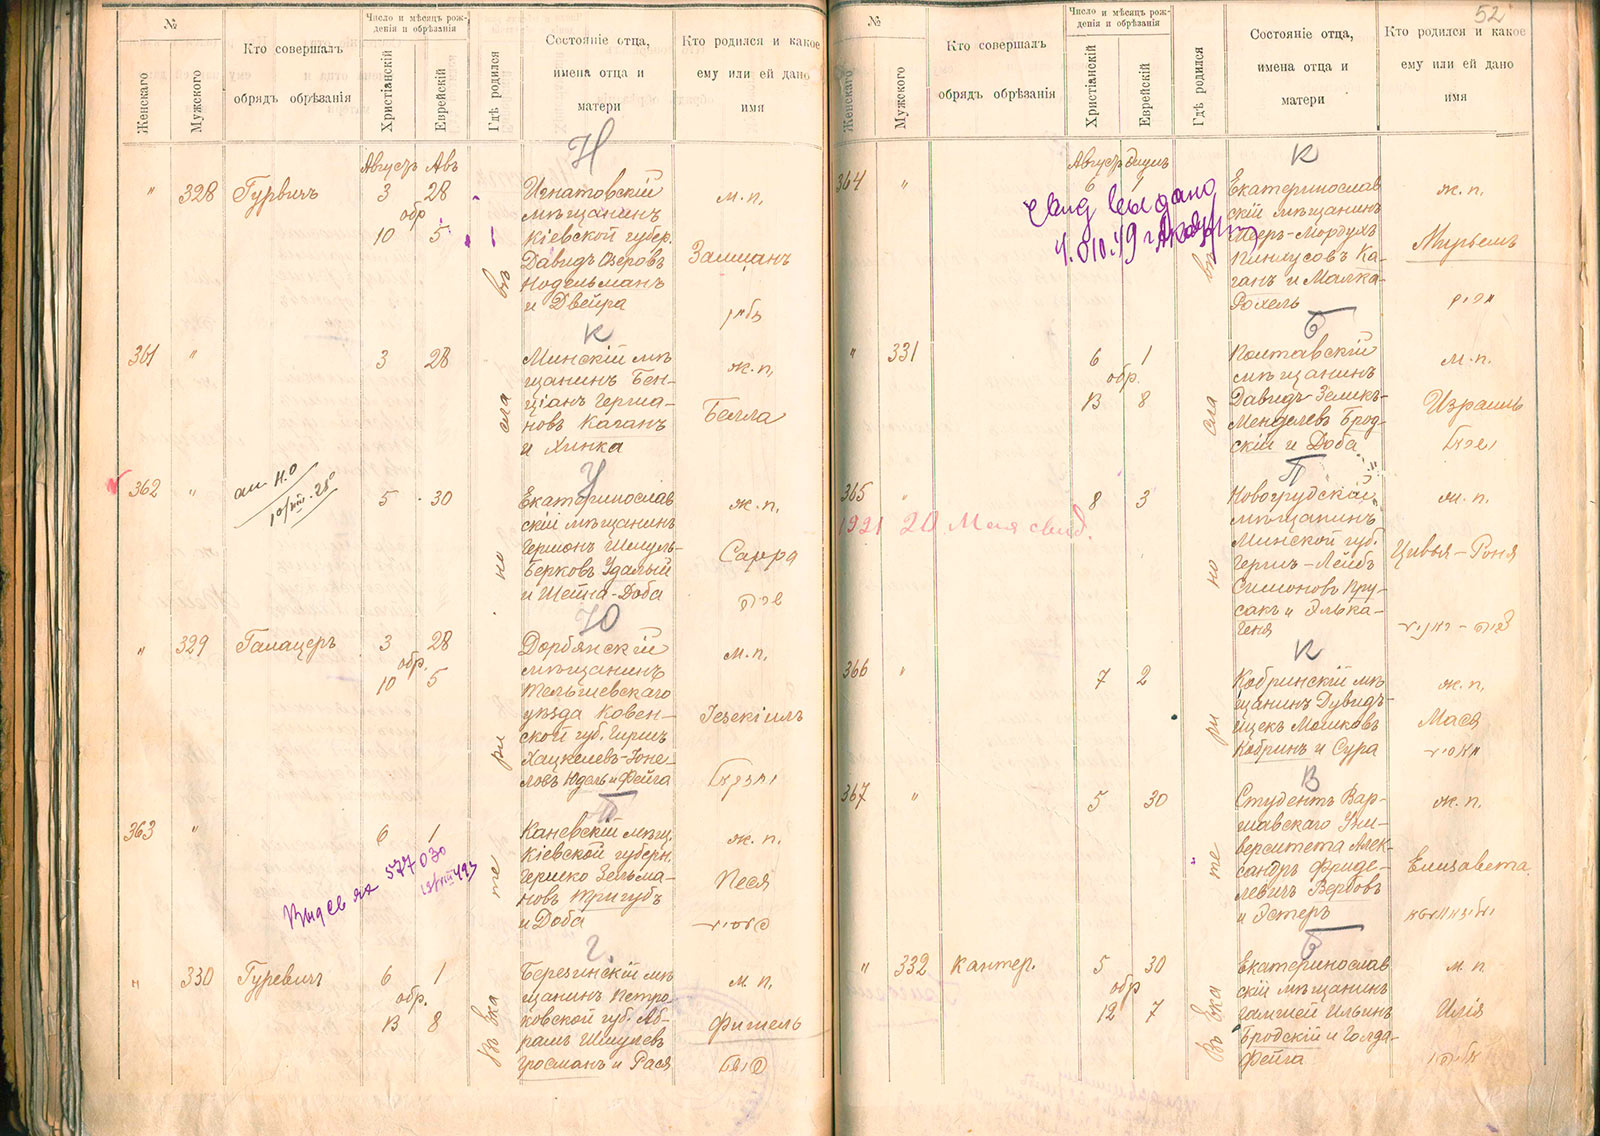 №
Женскаго
Мужского
Кто совершалъ
обрядъ обрѣзанія
Число и мѣсяцъ рож-
денія и обрѣзанія
Христіанскій
Еврейскій
Гдѣ родился
Состояніе отца,
имена отца и
матери
Кто родился и какое
ему или ей дано
имя
Августъ Авъ
Н
" 328 Гурвичъ 3 28
обр
10 5
Игнатовскій
мѣщанинъ
Кіевской губер.
Давидъ Озеровъ
Нодельманъ
и Двейра
м.п.
Залманъ
К
361 " 3 28
Минскій мѣ
щанинъ Бен-
ціанъ Герша-
новъ Каганъ
и Хинка
ж.п.
Белла
У
362 " 5 30
Екатеринослав
скій мѣщанинъ
Гершонъ Шмуль-
Берковъ Удалый
и Шейна-Доба
ж.п.
Сарра
שרה
Ю
" 329 Галацеръ 3 28
обр.
10 5
Дорбянскій
мѣщанинъ
Тельшевскаго
уѣзда Ковен-
ской губ. Гиршъ
Хацкелевъ-Іоне-
левъ Юдель и Фейга
м.п.
Іезекіиль
Т
363 " 6 1
Каневскій мѣщ.
Кіевской губерн.
Гершко Зельма-
новъ Тригубъ
и Доба
ж.п.
Песя
Г.
" 330 Гуревичъ 6 1
обр.
13 8
Березинскій мѣ
щанинъ Петро
ковской губ. Аб-
рамъ Шмулевъ
Гросманъ и Рася
м.п.
Фишель
въ
села
но
ри
те
Въ Ека
52
№
Женскаго
Мужского
Кто совершалъ
обрядъ обрѣзанія
Число и мѣсяцъ рож-
денія и обрѣзанія
Христіанскій
Еврейскій
Гдѣ родился
Состояніе отца,
имена отца и
матери
Кто родился и какое
ему или ей дано
имя
Августъ Элулъ
К
364 " 6 1
Екатеринослав
скій мѣщанинъ
Мееръ-Мордухъ
Пинхусовъ Ка-
ганъ и Малка-
Рохель
ж.п.
Мирьемъ
מרים
Б
" 331 6 1
обр.
13 8
Полтавскій
мѣщанинъ
Давидъ Зеликъ-
Менделевъ Брод-
скій и Доба
м.п.
Израиль
П
365 " 8 3
1921 20 Мая свид.
Новогрудскій
мѣщанинъ
Минской губ.
Гершъ-Лейбъ
Симоновъ Пру-
сакъ и Элька-
Геня
ж.п.
Цивья-Роня
К
366 " 7 2
Кобринскій мѣ
щанинъ Дувидъ-
Ицекъ Мошковъ
Кобринъ и Сура
ж.п.
Мася
В
367 " 5 30
Студентъ Вар-
шавскаго Уни-
верситета Алек-
сандръ Фриде-
левичъ Вербовъ
и Эстеръ
ж.п.
Елизавета
Б
" 332 Кантер. 5 30
обр
12 7
Екатеринослав
скій мѣщанинъ
Гамшей Ильинъ
Бродскій и Голда-
Фейга
м.п
Илія
въ
сла
но
ри
те
Въ Ека